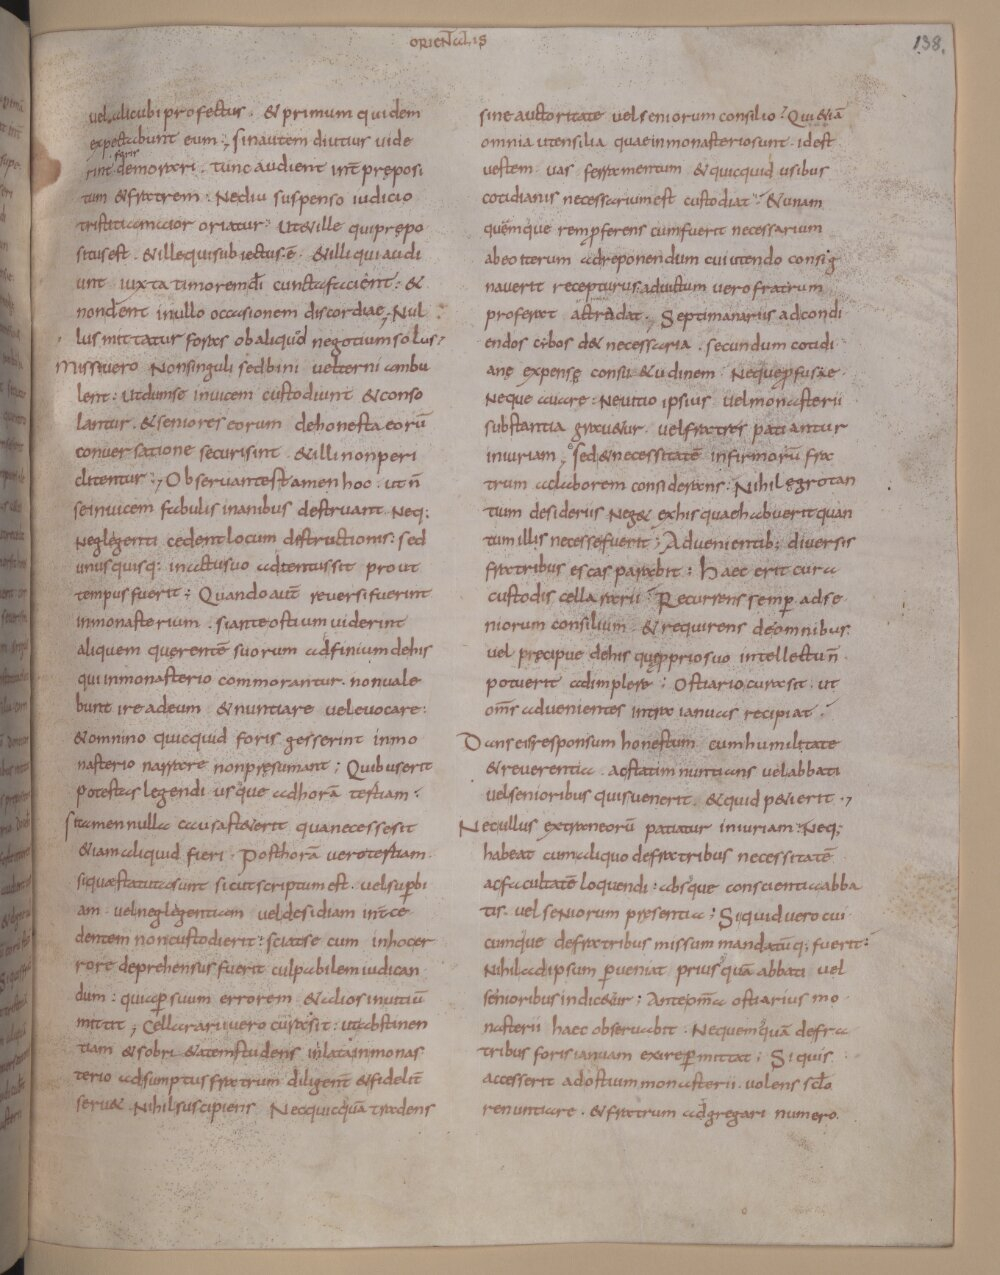 ORIENTALIS
138.
uel alicubi profectus . & primum quidem
expectabunt eum ; sin autem diutius uide
foris
rint demorari . tunc audient int̄ preposi
tum & fratrem . Ne diu suspenso iudicio
tristitia maior oriatur . Ut & ille qui prepo
situs est . & ille qui subiectus ē . & illi qui audi
unt iuxta timorem dī cuncta facient : &
non dent in ullo occasionem discordiae ; Nul
lus mittatur foras ob aliquod negotium solus ;
Missi uero Non singuli sed bini uel terni ambu
lent : ut dum se inuicem custodiunt & conso
lantur . & seniores eorum de honesta eorū
conuersatione securi sint . & illi non peri
clitentur ; Obseruantes tamen hoc . ut n̄
se inuicem fabulis inanibus destruant . Neq;
neglegenti cedent locum distructionis . sed
unusquisq: in actu suo adtentus sit prout
tempus fuerit ; Quando aut̄ reuersi fuerint
in monasterium . si ante ostium uiderint
aliquem querentē suorum adfinium de his
qui in monasterio commorantur . non uale
bunt ire ad eum & nuntiare uel euocare :
& omnino quicquid foris gesserint in mo
nasterio narrare non presumant ; Quibus erit
potestas legendi usque ad horā tertiam :
si tamen nulla causa steterit qua necesse sit
& iam aliquid fieri . Post horā uero tertiam .
si quae statuta sunt sicut scriptum est . uel supbi
am uel neglegentiam uel desidiam int̄ce
dentem non custodierit : sciat se cum in hoc er
rore deprehensus fuerit culpabilem iudican
dum : quia p suum errorem & alios in uitiū
mittit ; Cellarari uero cura sit : ut abstinen
tiam & sobri & atem studens inlata in monas
terio ad sumptus fratrum diligent̄ & fidelit̄
seru& . Nihil suscipiens Nec quicquā tradens
sine auctoritate uel seniorum consilio ; Qui & iā
omnia utensilia quae in monasterio sunt . id est
uestem uas ferramentum & quicquid usibus
cotidianis necessarium est custodiat . & unam
quemque rem pferens cum fuerit necessarium
ab eo iterum ad reponendum cui utendo consig
nauerit recepturus ad uictum uero fratrum
proferat ac tradat ; Septimanariis ad condi
endos cibos d& necessaria . secundum cotidi
anę expensę consu&udinem . Neque pfuse .
Neque auare : Ne uitio ipsius uel monasterii
substantia grau&ur . uel fratres patiantur
iniuriam ; sed & necessitatē infirmorū fra
trum ac laborem considerans . Nihil egrotan
tium desideriis neg& ex his quae habuerit quan
tum illis necesse fuerit ; Aduenientib; diuersis
fratribus escas parabit : Haec erit cura
custodis cellararii . Recurrens semp ad se
niorum consilium & requirens de omnibus .
uel pręcipue de his quę pprio suo intellectu n̄
potuerit adimplere ; Ostiario cura sit . ut
om̄s aduenientes intra ianuas recipiat :
Dans eis responsum honestum cum humilitate
& reuerentia . ac statim nuntians uel abbati
uel senioribus quis uenerit . & quid p&ierit ;
Ne cullus extraneorū patiatur iniuriam : Neq;
habeat cum aliquo de fratribus necessitatē
ac facultatē loquendi : absque conscientia abba
tis . uel seniorum presentia ; Si quid uero cui
cumque de fratribus missum mandatūq; fuerit :
Nihil ad ipsum pueniat prius quā abbati uel
senioribus indic&ur : Ante om̄a ostiarius mo
nasterii haec obseruabit . Ne quemquā de fra
tribus foris ianuam exire pmittat ; Si quis
accesserit ad ostium monasterii . uolens sc̄lo
renuntiare . & fratrum adgregari numero .